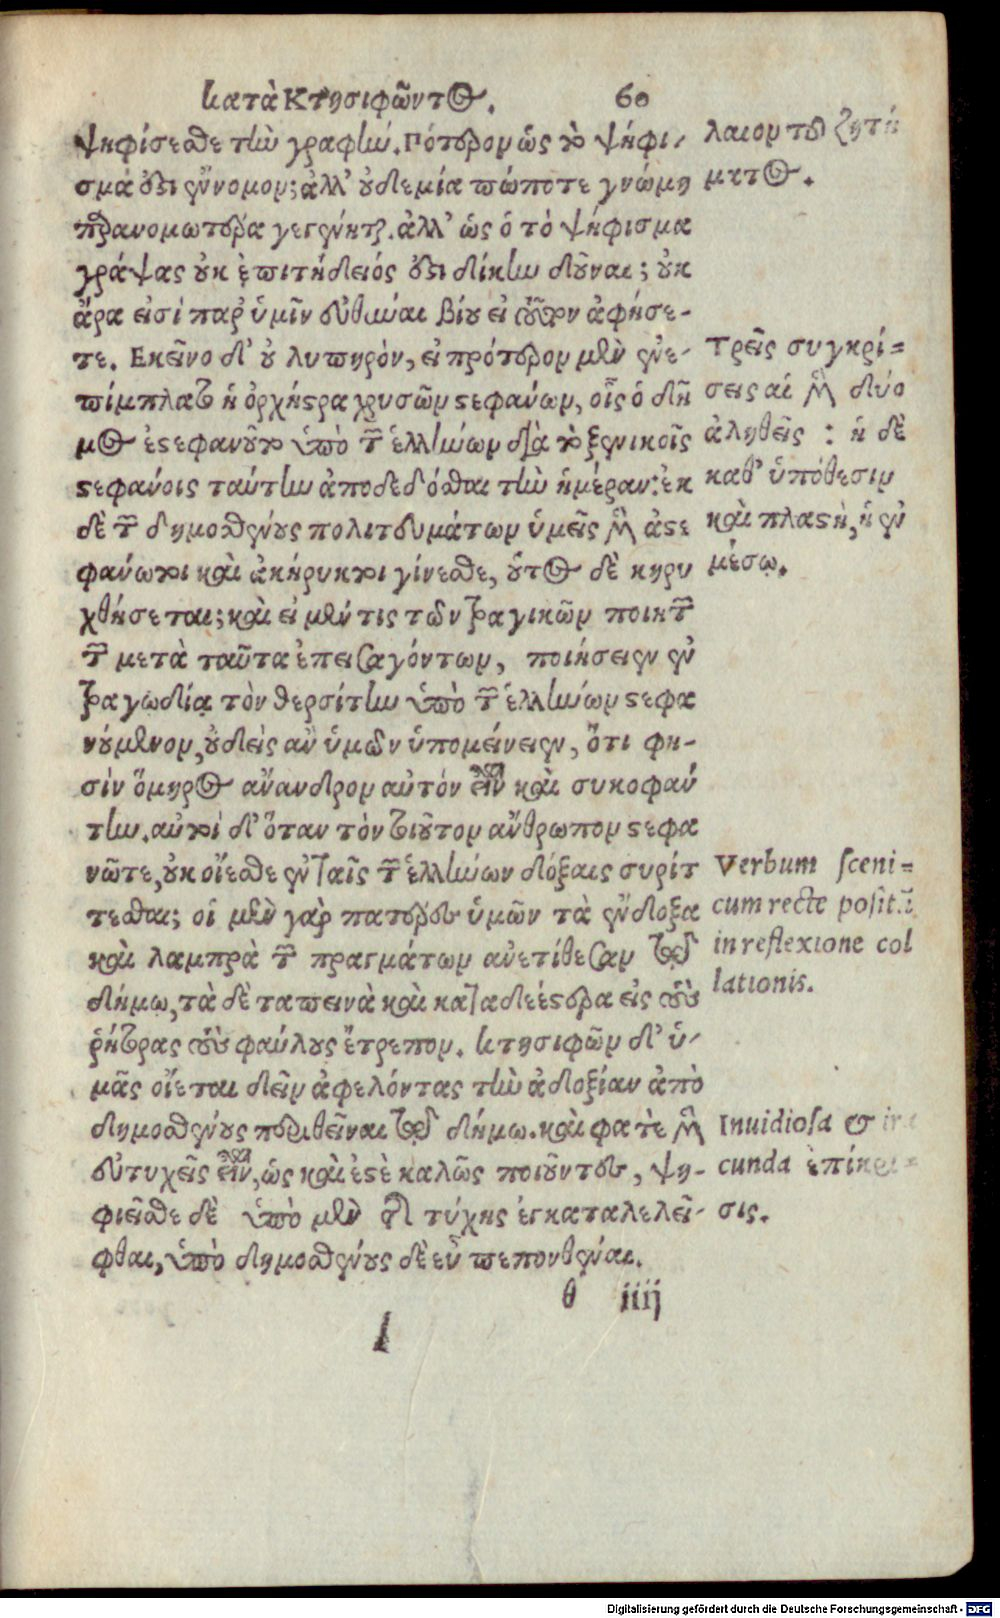 κατὰ Κτησιφῶντος. 60
ψηφίσεσθε τὴν γραφήν. Πότερον ὡς τὸ ψήφι-
σμά ἐστι ἔννομον; ἀλλ' οὐδεμία πώποτε γνώμη
παρανομωτέρα γεγένηται. ἀλλ' ὡς ὁ τὸ ψήφισμα
γράψας οὐκ ἐπιτήδειός ἐστι δίκην δοῦναι; οὐκ
ἄρα εἰσὶ παρ' ὑμῖν εὐθῦναι βίου εἰ τοῦτον ἀφήσε-
τε. Εκεῖνο δ' οὐ λυπηρόν, εἰ πρότερον μὲν ἐνε-
πίμπλατο ἡ ὀρχήστρα χρυσῶν στεφάνων, οἷς ὁ δῆ
μος ἐστεφανοῦτο ὑπὸ τῶν ἑλλήνων διὰ τὸ ξενικοῖς
στεφάνοις ταύτην ἀποδεδόσθαι τὴν ἡμέραν: ἐκ
δὲ τῶν δημοσθένους πολιτευμάτων ὑμεῖς μὲν ἀστε
φάνωτοι καὶ ἀκήρυκτοι γίνεσθε, οὗτος δὲ κηρυ
χθήσεται; καὶ εἰ μέν τις τῶν τραγικῶν ποιητῶν
τῶν μετὰ ταῦτα ἐπεισαγόντων, ποιήσειεν ἐν
τραγωδίᾳ τὸν θερσίτην ὑπὸ τῶν ἑλλήνων στεφα
νούμενον, οὐδεὶς ἂν ὑμῶν ὑπομείνειεν, ὅτι φη-
σὶν ὅμηρος ἄνανδρον αὐτόν εἶναι καὶ συκοφάν
την. αὐτοὶ δ' ὅταν τὸν τοιοῦτον ἄνθρωπον στεφα
νῶτε, οὐκ οἴεσθε ἐν ταῖς τῶν ἑλλήνων δόξαις συρίτ
τεσθαι; οἱ μὲν γὰρ πατέρες ὑμῶν τὰ ἔνδοξα
καὶ λαμπρὰ τῶν πραγμάτων ἀνετίθεσαν τῷ
δήμω, τὰ δὲ ταπεινὰ καὶ καταδεέστερα εἰς τοὺς
ῥήτορας τοὺς φαύλους ἔτρεπον. κτησιφῶν δ' ὑ-
μᾶς οἴεται δεῖν ἀφελόντας τὴν ἀδοξίαν ἀπὸ
δημοσθένους περιθεῖναι τῷ δήμω. καὶ φατὲ μὲν
εὐτυχεῖς εἶναι, ὡς καὶ ἐστὲ καλῶς ποιοῦντες, ψη-
φιεῖσθε δὲ ὑπὸ μὲν τῆς τύχης ἐγκαταλελεῖ-
φθαι, ὑπὸ δημοσθένους δὲ εὖ πεπονθέναι.
θ iiij
λαιον τοῦ ζητή
ματος.
Τρεῖς συγκρί=
σεις αἱ μὲν δύο
ἀληθεῖς : ἡ δὲ
καθ' ὑπόθεσιν
καὶ πλαστὴ, ἡ ἐν
μέσῳ.
Verbum sceni=
cum recte positū
in reflexione col
lationis.
Inuidiosa & ira
cunda ἐπίκρι=
σις.
Digitalisierung gefördert durch die Deutsche Forschungsgemeinschaft - DFG